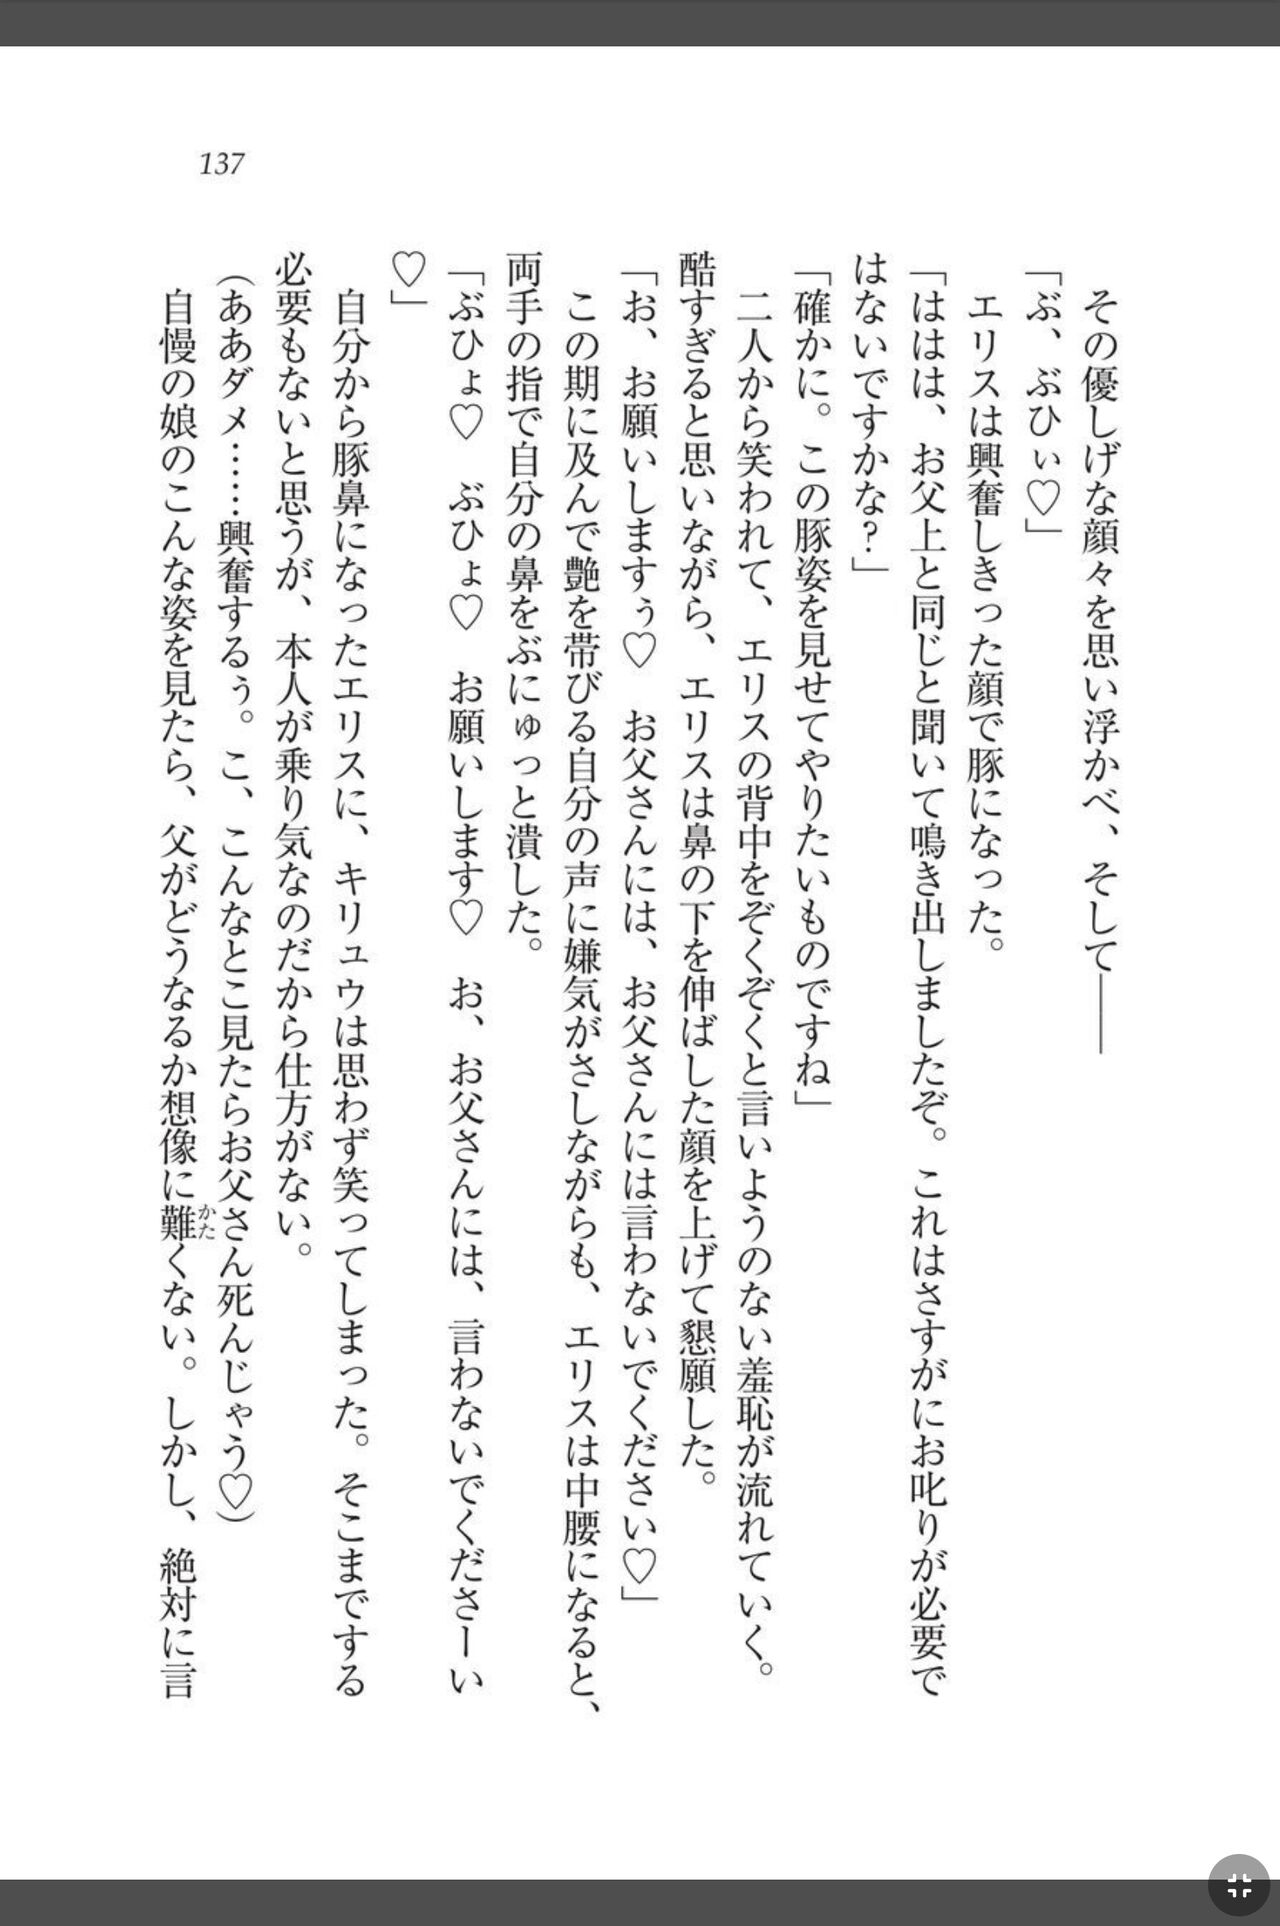 137
その優しげな顔々を思い浮かべ、そして――
「ぶ、ぶひぃ♡」
エリスは興奮しきった顔で豚になった。
「ははは、お父上と同じと聞いて鳴き出しましたぞ。これはさすがにお叱りが必要で
はないですかな？」
「確かに。この豚姿を見せてやりたいものですね」
二人から笑われて、エリスの背中をぞくぞくと言いようのない羞恥が流れていく。
酷すぎると思いながら、エリスは鼻の下を伸ばした顔を上げて懇願した。
「お、お願いしますぅ♡　お父さんには、お父さんには言わないでください♡」
この期に及んで艶を帯びる自分の声に嫌気がさしながらも、エリスは中腰になると、
両手の指で自分の鼻をぶにゅっと潰した。
「ぶひょ♡　ぶひょ♡　お願いします♡　お、お父さんには、言わないでくださーい
♡」
自分から豚鼻になったエリスに、キリュウは思わず笑ってしまった。そこまでする
必要もないと思うが、本人が乗り気なのだから仕方がない。
（ああダメ……興奮するぅ。こ、こんなとこ見たらお父さん死んじゃう♡）
自慢の娘のこんな姿を見たら、父がどうなるか想像に難かたくない。しかし、絶対に言